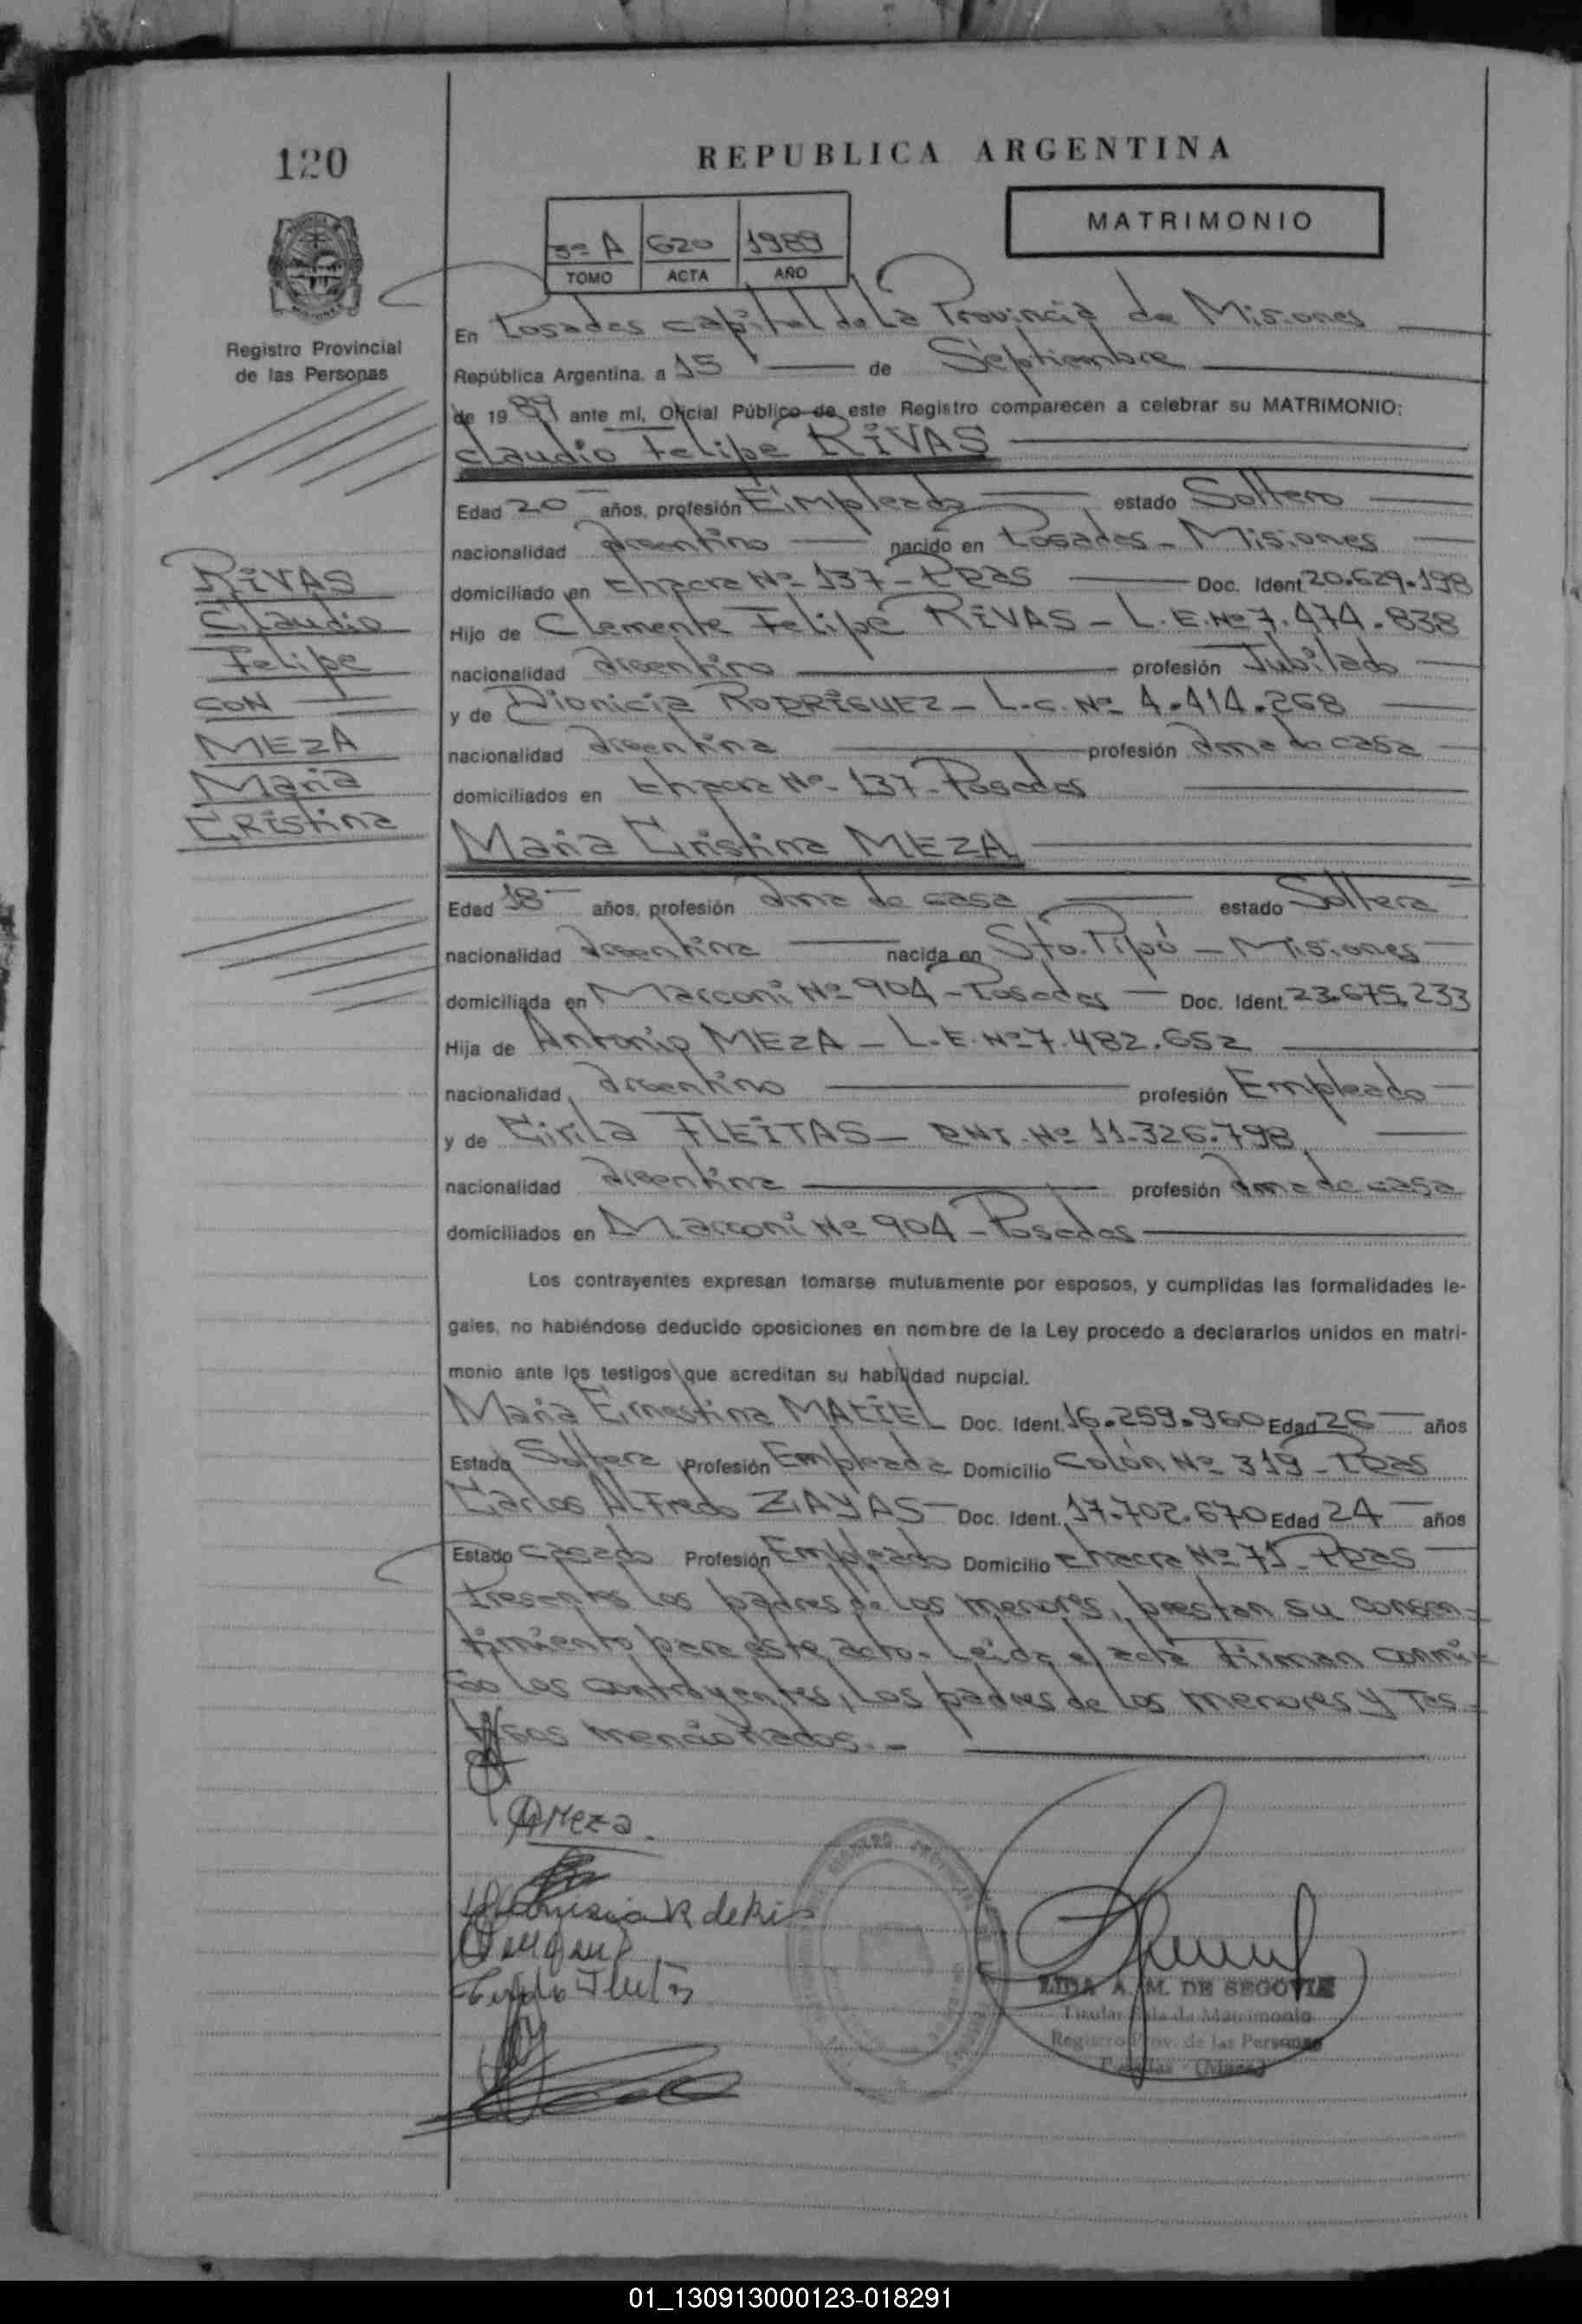 120
REPUBLICA ARGENTINA
MATRIMONIO
3º A 620 1989
TOMO ACTA AÑO
Registro Provincial
de las Personas
En Posadas capital de la Provincia de Misiones
República Argentina, a 15 de Septiembre
de 1989 ante mi, Oficial Público de este Registro comparecen a celebrar su MATRIMONIO:
Claudio Felipe RIVAS
Edad 20 años, profesión Empleado estado Soltero
nacionalidad argentino nacido en Posadas - Misiones
domiciliado en Chacra Nº 137 - Pdas Doc. Ident. 20.629.198
Hijo de Clemente Felipe RIVAS - L.E. Nº 7.474.838
nacionalidad argentino profesión Jubilado
y de Dionicia RODRIGUEZ - L.C. Nº 4.414.268
nacionalidad argentina profesión ama de casa
domiciliados en Chacra Nº 137 - Posadas
RIVAS
Claudio
Felipe
CON
MEZA
Maria
CRistina
Maria Cristina MEZA
Edad 18 años, profesión ama de casa estado Soltera
nacionalidad argentina nacida en Sto. Pipó - Misiones
domiciliada en Marconi Nº 904 - Posadas Doc. Ident. 23.675.233
Hija de Antonio MEZA - L.E. Nº 7.482.652
nacionalidad argentino profesión Empleado
y de Cirila FLEITAS - DNI. Nº 11.326.798
nacionalidad argentina profesión ama de casa
domiciliados en Marconi Nº 904 - Posadas
Los contrayentes expresan tomarse mutuamente por esposos, y cumplidas las formalidades le-
gales, no habiéndose deducido oposiciones en nombre de la Ley procedo a declararlos unidos en matri-
monio ante los testigos que acreditan su habilidad nupcial.
Maria Ernestina MACIEL Doc. Ident. 16.259.960 Edad 26 años
Estado Soltera Profesión Empleada Domicilio Colón Nº 319 - Pdas
Carlos Alfredo ZAYAS Doc. Ident. 17.702.670 Edad 24 años
Estado casado Profesión Empleado Domicilio chacra Nº 71 - Pdas
Presentes los padres de los menores, prestan su consen-
timiento para este acto. Leída el acta Firman conmi-
go los contrayentes, los padres de los menores y tes-
tigos mencionados.-
Meza
LIDA A. M. DE SEGOVIA
Titular Sala de Matrimonio
Registro Prov. de las Personas
Posadas - (Mnes)
01_130913000123-018291